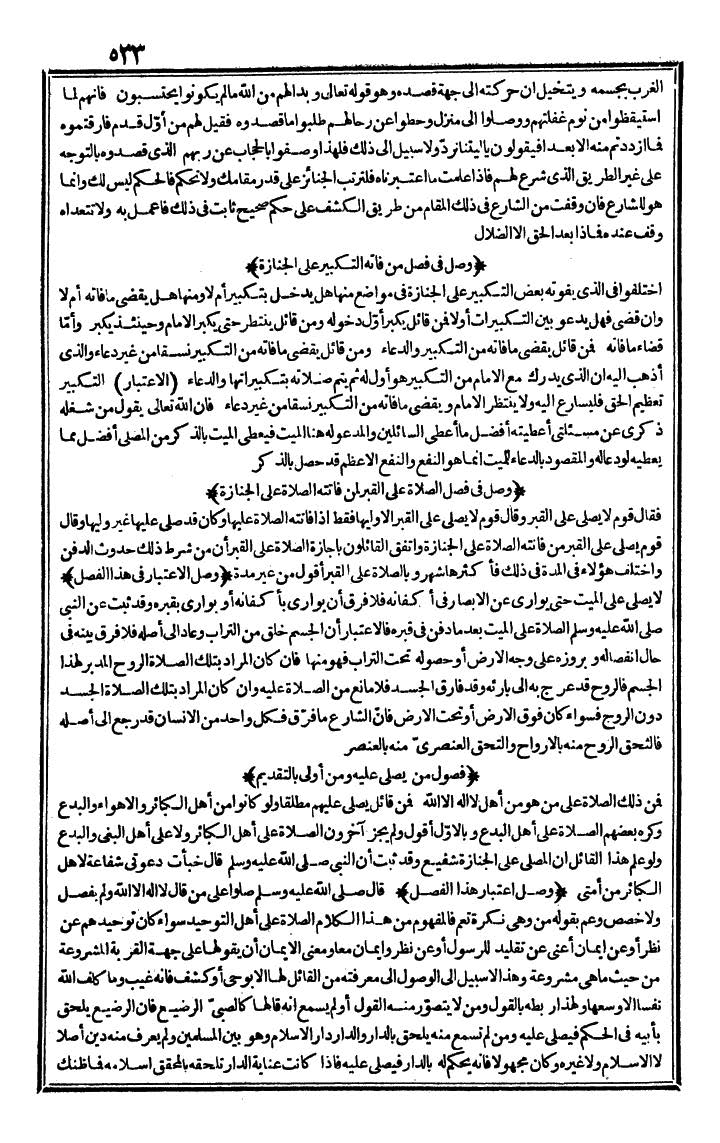 ٥٣٣
الغرب بجسمه ويتخيل ان حركته الى جهة قصده وهو قوله تعالى وبدالهم من الله مالم يكونوا يحتسبون فانهم لما
استيقظوا من نوم غفلتهم ووصلوا الى منزل وحطوا عن رحالهم طلبوا ما قصدوه فقيل لهم من أوّل قدم فارقتموه
فما ازددتم منه الا بعدا فيقولون ياليتنا نردّ ولا سبيل الى ذلك فلهذا وصفوا بالحجاب عن ربهم الذى قصدوه بالتوجه
على غير الطريق الذى شرع لهم فاذا علمت ما اعتبرناه فلترتب الجنائز على قدر مقامك ولا تحكم فالحكم ليس لك وانما
هو للشارع فان وقفت من الشارع فى ذلك المقام من طريق الكشف على حكم صحيح ثابت فى ذلك فاعمل به ولا تتعداه
وقف عنده فماذا بعد الحق الا الضلال
﴿وصل فى فصل من فاته التكبير على الجنازة﴾
اختلفوا فى الذى يفوته بعض التكبير على الجنازة فى مواضع منها هل يدخل بتكبير أم لا ومنها هل يقضى ما فاته أم لا
وان قضى فهل يدعو بين التكبيرات أولا فمن قائل يكبر أوّل دخوله ومن قائل ينتظر حتى يكبر الامام وحينئذ يكبر وأمّا
قضاء ما فاته فمن قائل يقضى ما فاته من التكبير والدعاء ومن قائل يقضى ما فاته من التكبير نسقا من غير دعاء والذى
أذهب اليه ان الذى يدرك مع الامام من التكبير هو أول له ثم يتم صلاته بتكبيراتها والدعاء (الاعتبار) التكبير
تعظيم الحق فليسارع اليه ولا ينتظر الامام ويقضى ما فاته من التكبير نسقا من غير دعاء فان الله تعالى يقول من شغله
ذكرى عن مسئلتى أعطيته أفضل ما أعطى السائلين والمدعو له هنا الميت فيعطى الميت بالذكر من المصلى أفضل مما
يعطيه لو دعا له والمقصود بالدعاء للميت انما هو النفع والنفع الاعظم قد حصل بالذكر
﴿وصل فى فصل الصلاة على القبر لمن فاتته الصلاة على الجنازة﴾
فقال قوم لا يصلى على القبر وقال قوم لا يصلى على القبر الا وليها فقط اذا فاتته الصلاة عليها وكان قد صلى عليها غير وليها وقال
قوم يصلى على القبر من فاتته الصلاة على الجنازة واتفق القائلون باجازة الصلاة على القبر أن من شرط ذلك حدوث الدفن
واختلف هؤلاء فى المدة فى ذلك فأكثرها شهر وبالصلاة على القبر أقول من غير مدة ﴿وصل الاعتبار فى هذا الفصل﴾
لا يصلى على الميت حتى يوارى عن الابصار فى أكفانه فلا فرق أن يوارى بأكفانه أو يوارى بقبره وقد ثبت عن النبى
صلى الله عليه وسلم الصلاة على الميت بعد ما دفن فى قبره فالاعتبار أن الجسم خلق من التراب وعاد الى أصله فلا فرق بينه فى
حال انفصاله وبروزه على وجه الارض أو حصوله تحت التراب فهو منها فان كان المراد بتلك الصلاة الروح المدبر لهذا
الجسم فالروح قد عرج به الى بارئه وقد فارق الجسد فلا مانع من الصلاة عليه وان كان المراد بتلك الصلاة الجسد
دون الروح فسواء كان فوق الارض أو تحت الارض فانّ الشارع ما فرّق فكل واحد من الانسان قد رجع الى أصله
فالتحق الروح منه بالارواح والتحق العنصرىّ منه بالعنصر
﴿فصول من يصلى عليه ومن أولى بالتقديم﴾
فمن ذلك الصلاة على من هو من أهل لا اله الا الله فمن قائل يصلى عليهم مطلقا ولو كانوا من أهل الكبائر والاهواء والبدع
وكره بعضهم الصلاة على أهل البدع وبالاوّل أقول ولم يجز آخرون الصلاة على أهل الكبائر ولا على أهل البغى والبدع
ولو علم هذا القائل ان المصلى على الجنازة شفيع وقد ثبت أن النبى صلى الله عليه وسلم قال خبأت دعوتى شفاعة لاهل
الكبائر من أمتى ﴿وصل اعتبار هذا الفصل﴾ قال صلى الله عليه وسلم صلوا على من قال لا اله الا الله ولم يفصل
ولا خصص وعم بقوله من وهى نكرة تعم فالمفهوم من هذا الكلام الصلاة على أهل التوحيد سواء كان توحيدهم عن
نظر أو عن ايمان أعنى عن تقليد للرسول أو عن نظر وايمان معا ومعنى الايمان أن يقولها على جهة القربة المشروعة
من حيث ما هى مشروعة وهذا لا سبيل الى الوصول الى معرفته من القائل لها الا بوحى أو كشف فانه غيب وما كلف الله
نفسا الا وسعها ولهذا ربطه بالقول ومن لا يتصوّر منه القول أو لم يسمع انه قالها كالصبىّ الرضيع فان الرضيع يلحق
بأبيه فى الحكم فيصلى عليه ومن لم تسمع منه يلحق بالدار والدار دار الاسلام وهو بين المسلمين ولم يعرف منه دين أصلا
لا الاسلام ولا غيره وكان مجهولا فانه يحكم له بالدار فيصلى عليه فاذا كانت عناية الدار تلحقه بالمحقق اسلامه فما ظنك